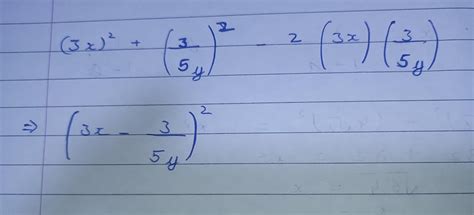 (3x)² + (3/5y)² - 2 (3x) (3/5y)
⇒ (3x - 3/5y)²